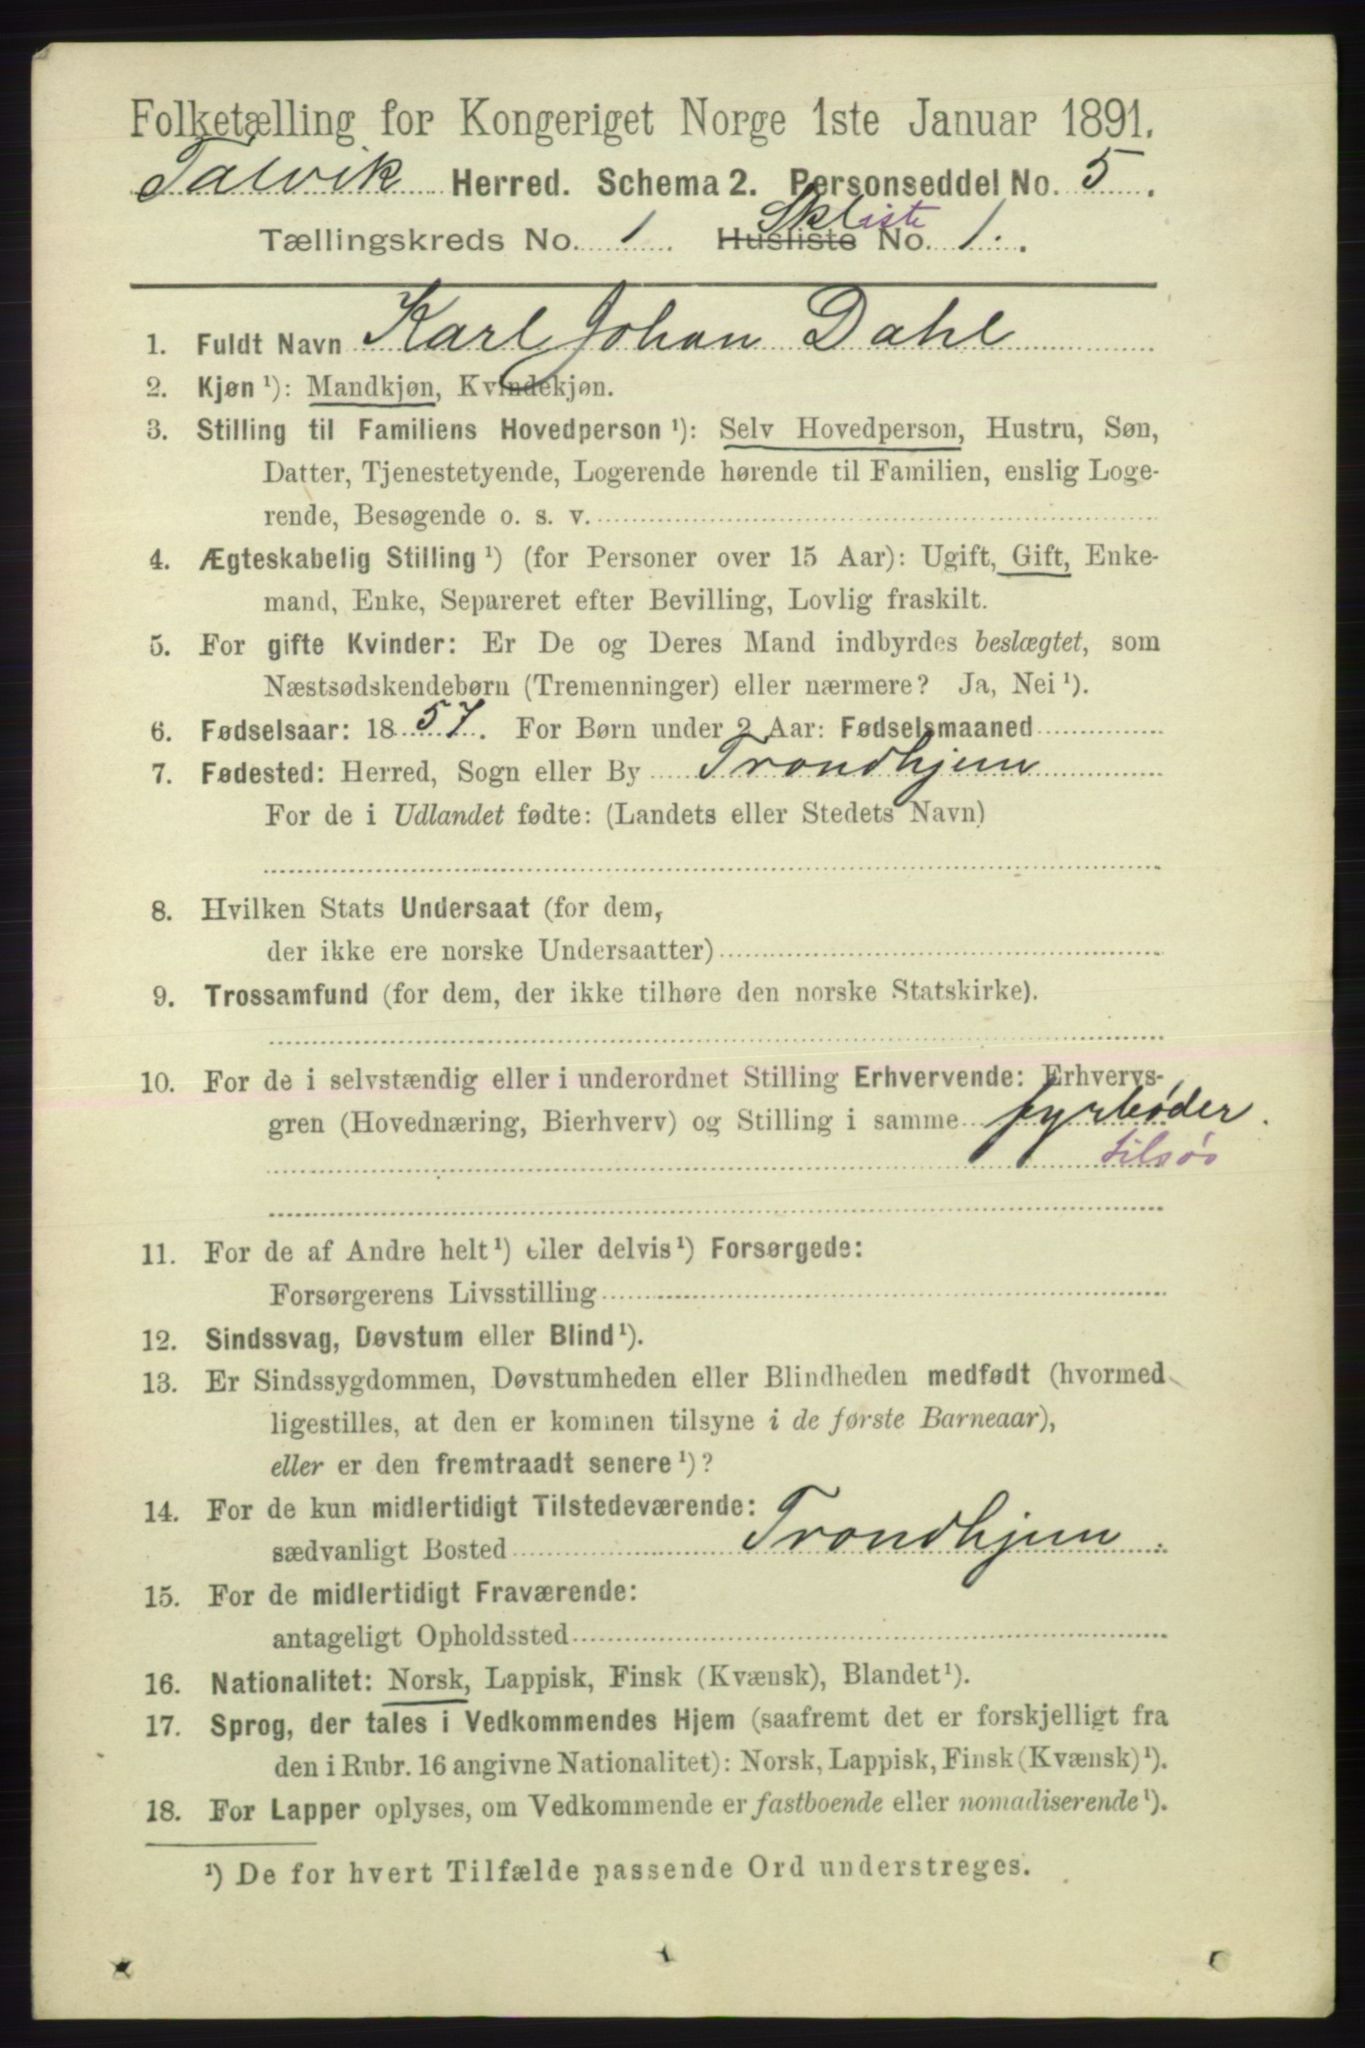 Folketælling for Kongeriget Norge 1ste Januar 1891.
Talvik Herred. Schema 2. Personseddel No. 5.
Tællingskreds No. 1 Husliste Skliste No. 1.
1. Fuldt Navn Karl Johan Dahl
2. Kjøn ¹): Mandkjøn, Kvindekjøn.
3. Stilling til Familiens Hovedperson ¹): Selv Hovedperson, Hustru, Søn,
Datter, Tjenestetyende, Logerende hørende til Familien, enslig Loge-
rende, Besøgende o. s. v.
4. Ægteskabelig Stilling ¹) (for Personer over 15 Aar): Ugift, Gift, Enke-
mand, Enke, Separeret efter Bevilling, Lovlig fraskilt.
5. For gifte Kvinder: Er De og Deres Mand indbyrdes beslægtet, som
Næstsødskendebørn (Tremenninger) eller nærmere? Ja, Nei ¹).
6. Fødselsaar: 1857. For Børn under 2 Aar: Fødselsmaaned
7. Fødested: Herred, Sogn eller By Trondhjem
For de i Udlandet fødte: (Landets eller Stedets Navn)
8. Hvilken Stats Undersaat (for dem,
der ikke ere norske Undersaatter)
9. Trossamfund (for dem, der ikke tilhøre den norske Statskirke).
10. For de i selvstændig eller i underordnet Stilling Erhvervende: Erhvervs-
gren (Hovednæring, Bierhverv) og Stilling i samme fyrbøder.
tilsøs
11. For de af Andre helt ¹) eller delvis ¹) Forsørgede:
Forsørgerens Livsstilling
12. Sindssvag, Døvstum eller Blind ¹).
13. Er Sindssygdommen, Døvstumheden eller Blindheden medfødt (hvormed
ligestilles, at den er kommen tilsyne i de første Barneaar),
eller er den fremtraadt senere ¹)?
14. For de kun midlertidigt Tilstedeværende:
sædvanligt Bosted Trondhjem.
15. For de midlertidigt Fraværende:
antageligt Opholdssted
16. Nationalitet: Norsk, Lappisk, Finsk (Kvænsk), Blandet ¹).
17. Sprog, der tales i Vedkommendes Hjem (saafremt det er forskjelligt fra
den i Rubr. 16 angivne Nationalitet): Norsk, Lappisk, Finsk (Kvænsk) ¹).
18. For Lapper oplyses, om Vedkommende er fastboende eller nomadiserende ¹).
¹) De for hvert Tilfælde passende Ord understreges.